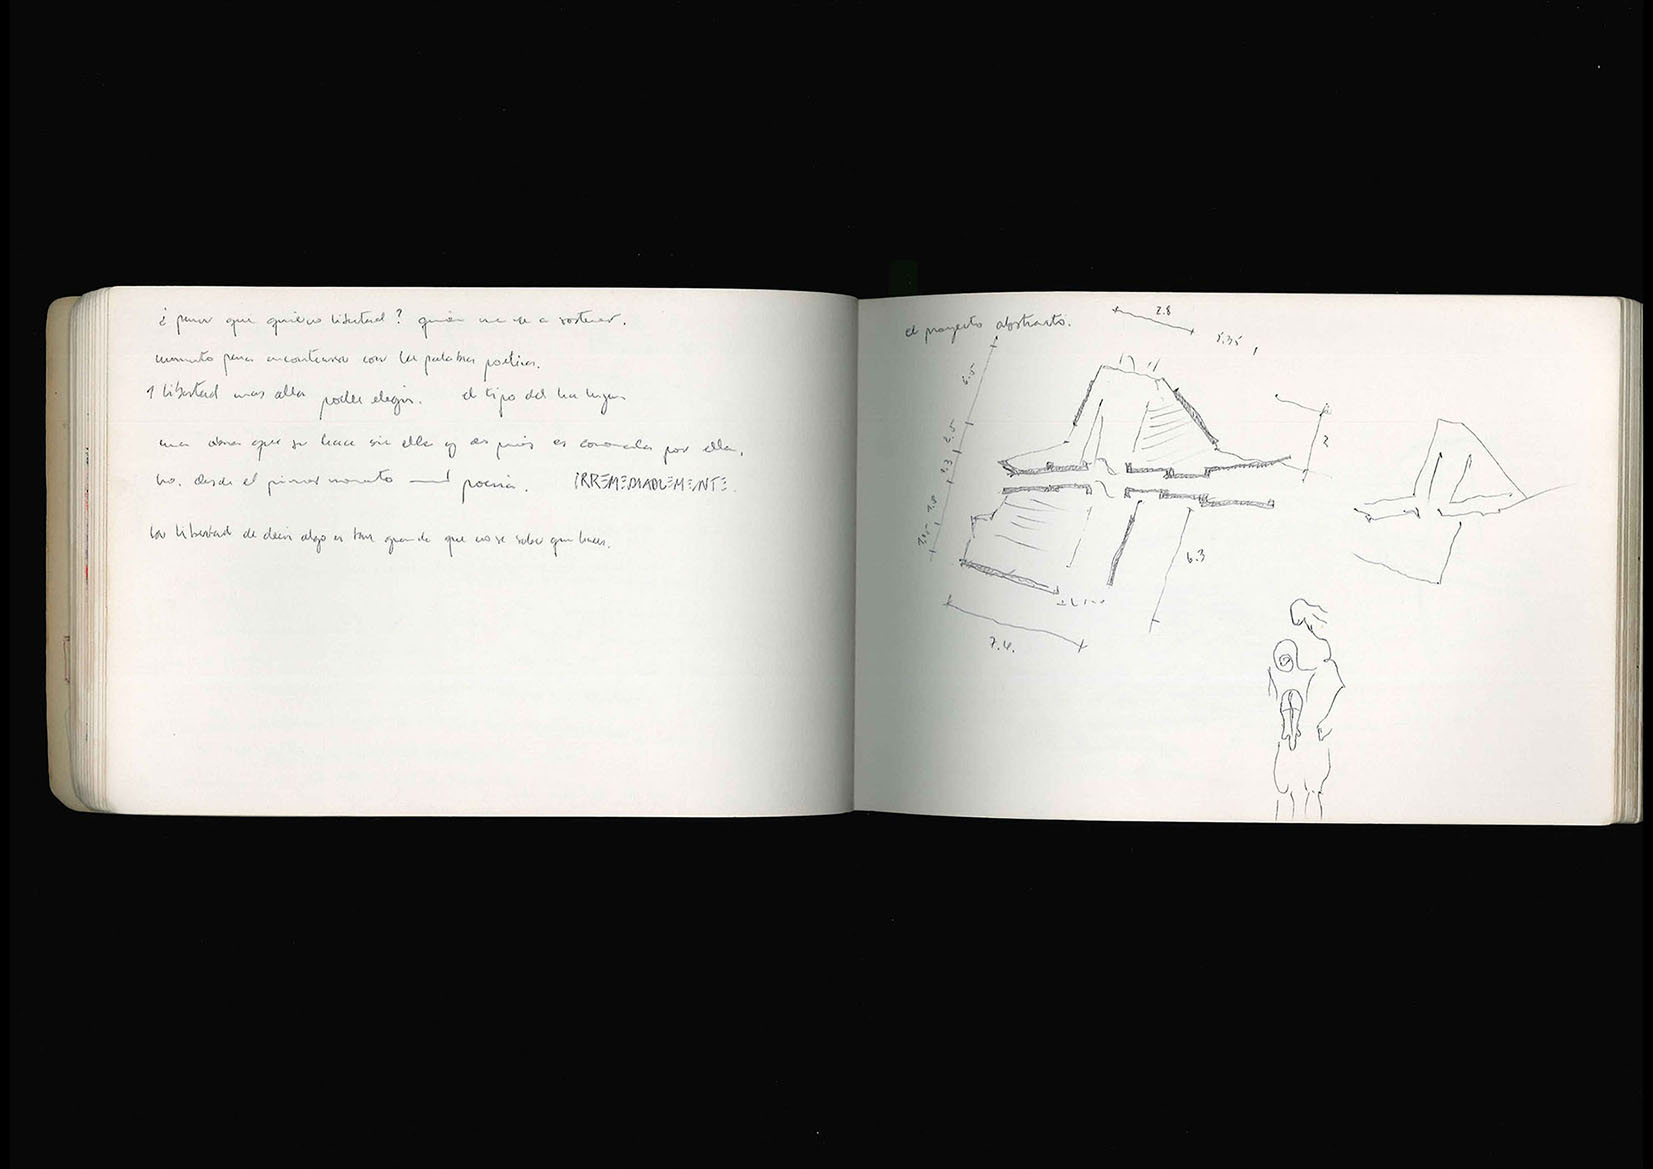 ¿para que quiero libertad? quién me va a sostener.
momento para encontrarse con la palabra poética.
1 libertad mas alla poder elegir. el tipo del
una obra que se hace sin ella y después es coronada por ella.
no. desde el primer momento poesía. IRREMEDIABLEMENTE.
la libertad de decir algo es tan grande que no se sabe que haces.
el proyecto abstracto.
2.8
5.35
6.5
2.5
1.3
2
6.3
7.4.